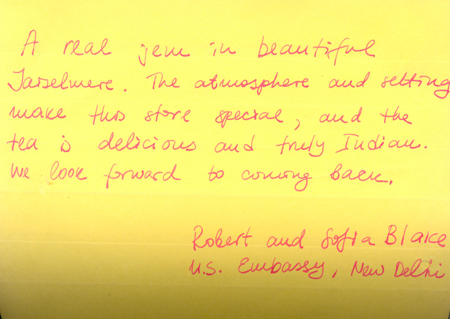 A real jem in beautiful
Jaiselmere. The atmosphere and setting
make this store special, and the
tea is delicious and truly Indian.
We look forward to coming back.
Robert and Sofia Blake
U.S. Embassy, New Delhi